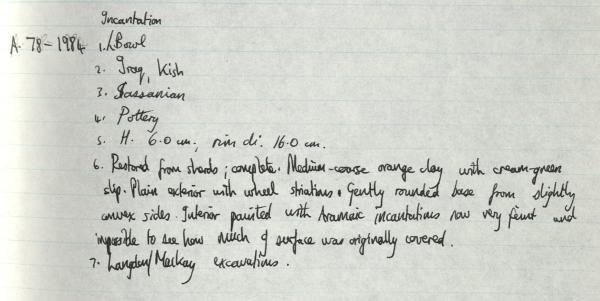 Incantation
A. 78-1984 1. Bowl
2. Iraq, Kish
3. Sassanian
4. Pottery
5. H. 6.0 cm; rim di. 16.0 cm.
6. Restored from sherds; complete. Medium-coarse orange clay with cream-green
slip. Plain exterior with wheel striations. Gently rounded base from slightly
convex sides. Interior painted with Aramaic incantations now very feint and
impossible to see how much of surface was originally covered.
7. Langdon/Mackay excavations.